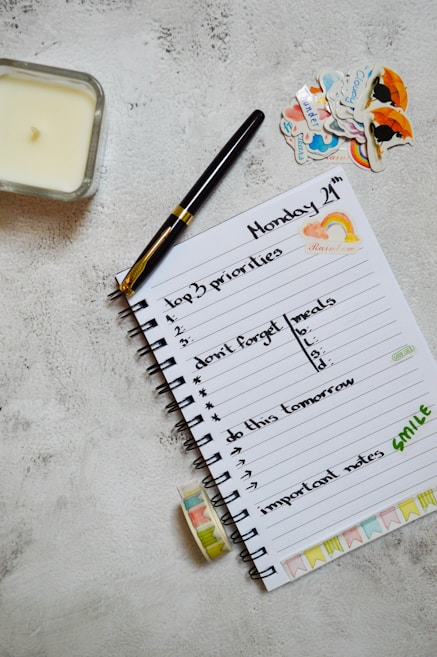 Monday 21th
Rainbow
top 3 priorities
1:
2:
3:
don't forget:
*
*
*
meals
b:
l:
s:
d:
do this tomorrow
→
→
→
important notes
SMILE
Cloudy